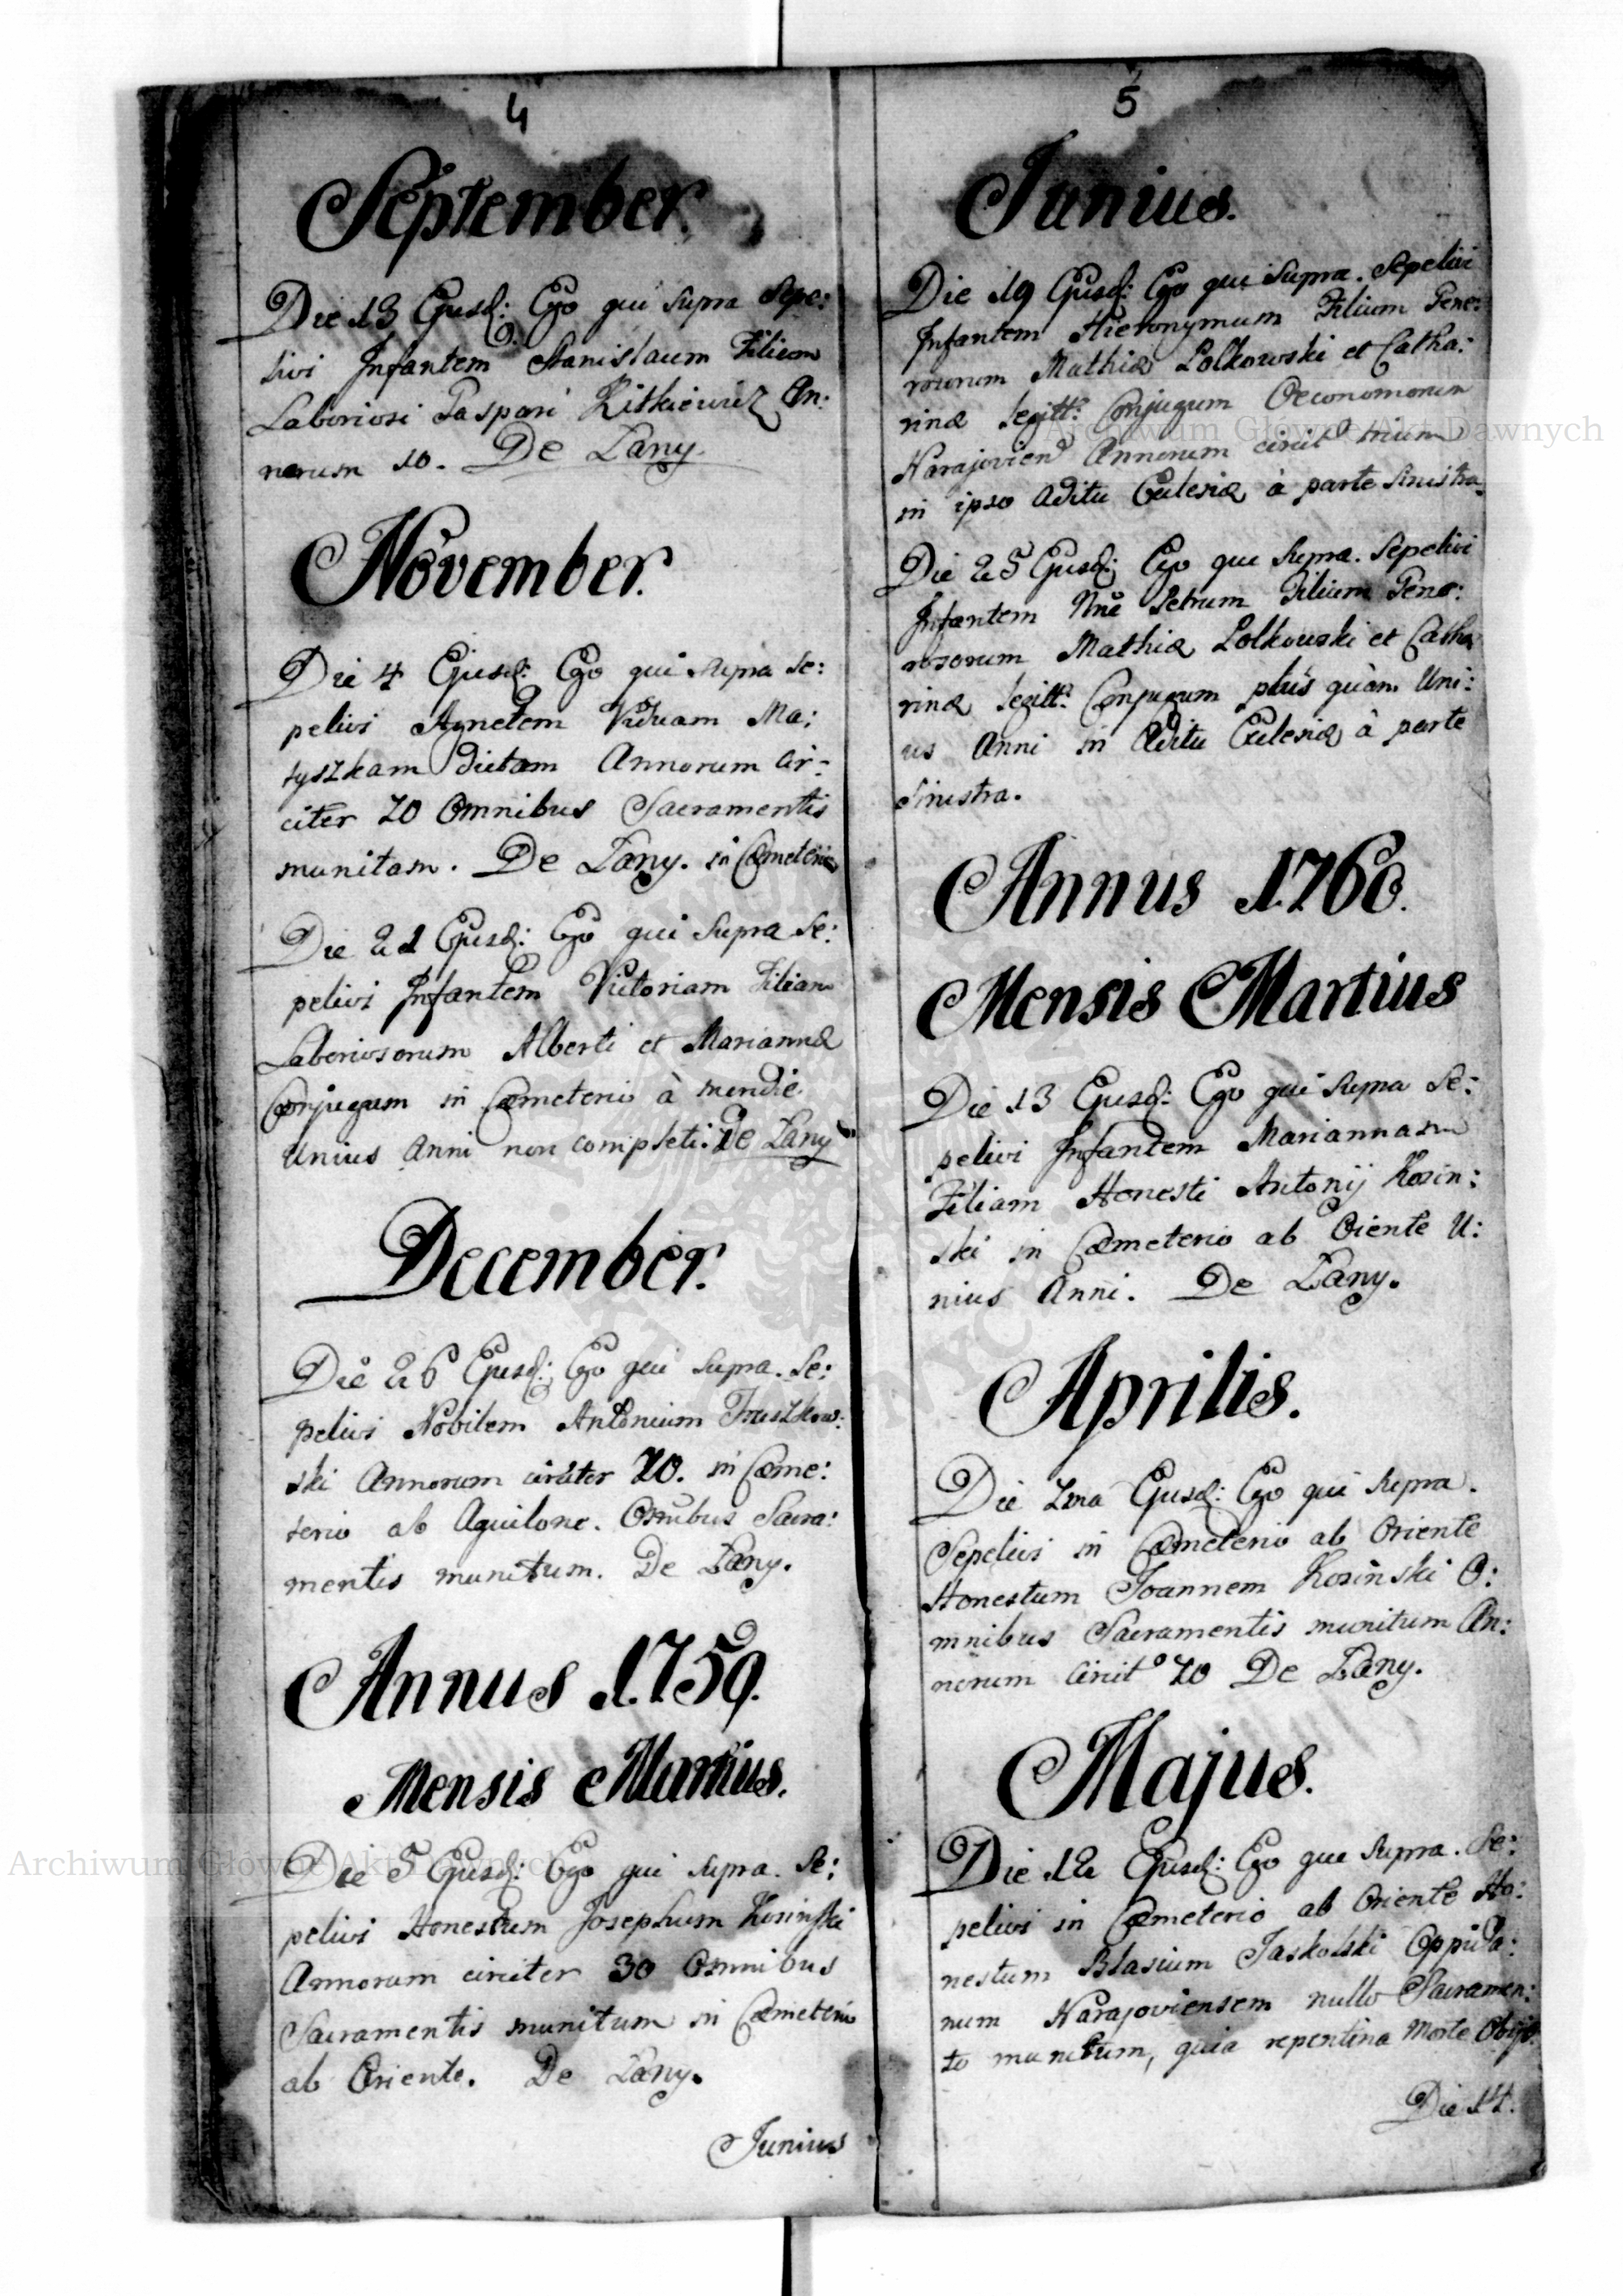 4
September.
Die 13 Ejusd: Ego qui supra Sepe:
livi Infantem Stanislaum Filium
Laboriosi Gaspari Kitkiewicz An:
norum 10. De Łany.
November.
Die 4 Ejusd: Ego qui supra Se:
pelivi Agnetem Viduam Ma:
tyszkam dictam Annorum Cir:
citer 70 Omnibus Sacramentis
munitam. De Łany. in Cæmeterio
Die 21 Ejusd: Ego qui supra Se:
pelivi Infantem Victoriam Filiam
Laboriosorum Alberti et Mariannæ
Conjugum in Cæmeterio à meridie
Unius Anni non completi. De Łany
December.
Die 26 Ejusd: Ego qui supra. Se:
pelivi Nobilem Antonium Truszkow:
ski Annorum circiter 70. in Cæme:
terio ab Aquilone. Omibus Sacra:
mentis munitum. De Łany.
Annus 1759.
Mensis Martius.
Die 5 Ejusd: Ego qui supra. Se:
pelivi Honestum Josephum Kosinski
Annorum circiter 30 Omnibus
Sacramentis munitum in Cæmeterio
ab Oriente. De Łany.
Junius
5
Junius.
Die 19 Ejusd: Ego qui supra. Sepelivi
Infantem Hieronymum Filium Gene:
rosorum Mathiæ Lolkowski et Catha:
rinæ legitt: Conjugum Oeconomorum
Narajovien Annorum circit trium
in ipso aditu Ecclesiæ à parte sinistra.
Die 25 Ejusd: Ego qui supra. Sepelivi
Infantem Nne Petrum Filium Gene:
rosorum Mathiæ Lolkowski et Catha
rinæ legitt: Conjugum plus quàm Uni:
us Anni in Aditu Ecclesiæ à parte
Sinistra.
Annus 1760.
Mensis Martius
Die 13 Ejusd: Ego qui supra Se:
pelivi Infantem Mariannam
Filiam Honesti Antonij Kosin:
ski in Cæmeterio ab Oriente U:
nius Anni. De Łany.
Aprilis.
Die 7ma Ejusd: Ego qui supra.
Sepelivi in Cæmeterio ab Oriente
Honestum Joannem Kosinski O:
mnibus Sacramentis munitum An:
norum Circit 70 De Łany.
Majus.
Die 12 Ejusd: Ego qui supra. Se:
pelivi in Cæmeterio ab Oriente Ho:
nestum Blasium Jaskolski Oppida:
num Narajoviensem nullo Sacramen:
to munitum, quia repentina Morte Obijt.
Die 14.
Archiwum Główne Akt Dawnych
Archiwum Główne Akt Dawnych